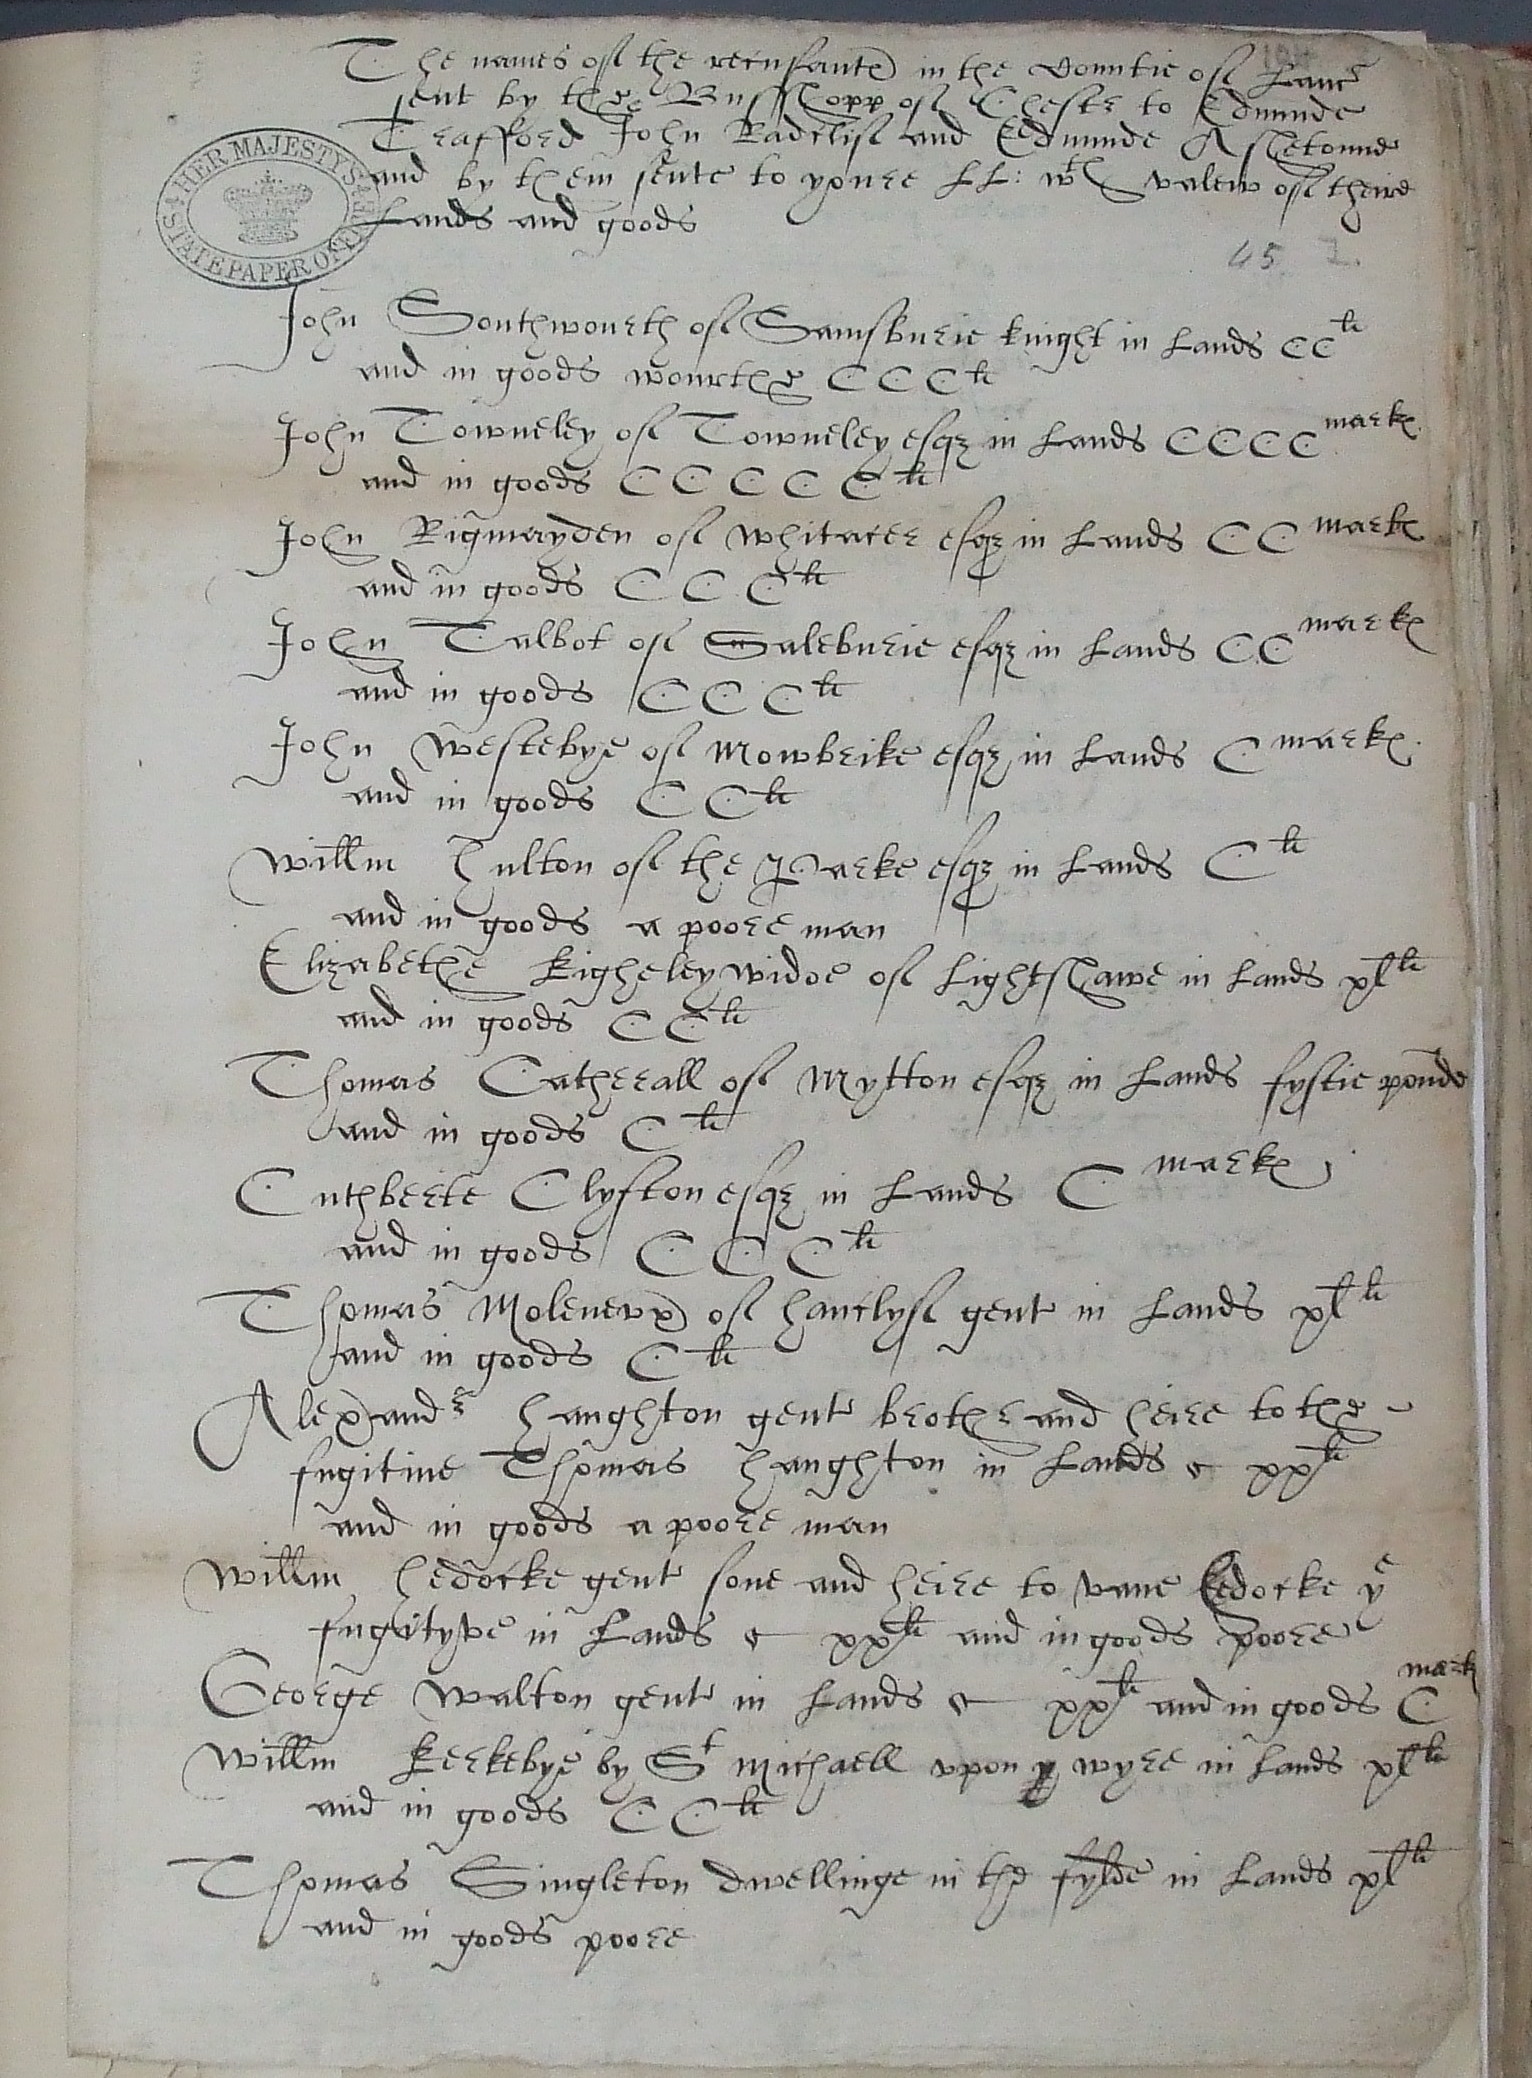 The names off the recusants in the Countie off Lanc
sent by the Busshopp off Chestr to Edmunde
Trafford John Radclif and Edmunde Ashetonne
and by them sente to youre LL: wth valew off theire
Lands and goods
HER MAJESTY'S STATE PAPER OFFICE
45
John Southwourth off Samsburie knight in Lands CC li
and in goods wourthe CCC li
John Towneley off Towneley esqr in Lands CCCC marks
and in goods CCCCC li
John Rigmayden off Whitacer esqr in Lands CC marks
and in goods CCC li
John Talbot off Saleburie esqr in Lands CC marks
and in goods CCC li
John Westebye off Mowbrike esqr in Lands C marks
and in goods CC li
Willm Hulton off the Parke esqr in Lands C li
and in goods a poore man
Elizabethe Kigheley widoe off Lightshawe in Lands xl li
and in goods CC li
Thomas Catherall off Mytton esqr in Lands fyftie pounde
and in goods C li
Cuthberte Clyfton esqr in Lands C marks
and in goods CCC li
Thomas Molenexx off Hauclyff gent in Lands xl li
and in goods C li
Alexandr Haughton gent brothr and heire to the
fugitive Thomas Haughton in Lands xx li
and in goods a poore man
Willm Hedocke gent sone and heire to vane Hedocke ye
fugityve in Lands xx li and in goods poore
George Walton gent in Lands xx li and in goods C mark
Willm Kerkebye by St Michaell upon wyre in Lands xl li
and in goods CC li
Thomas Singleton dwellinge in the fylde in Lands xl li
and in goods poore